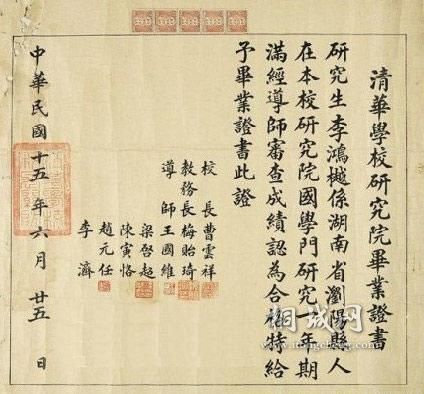 清華學校研究院畢業證書
研究生李鴻樾係湖南省瀏陽縣人
在本校研究院國學門研究一年期
滿經導師審查成績認為合格特給
予畢業證書此證
校長曹雲祥
教務長梅貽琦
導師王國維
梁啓超
陳寅恪
趙元任
李濟
中華民國十五年六月廿五日
桐城网